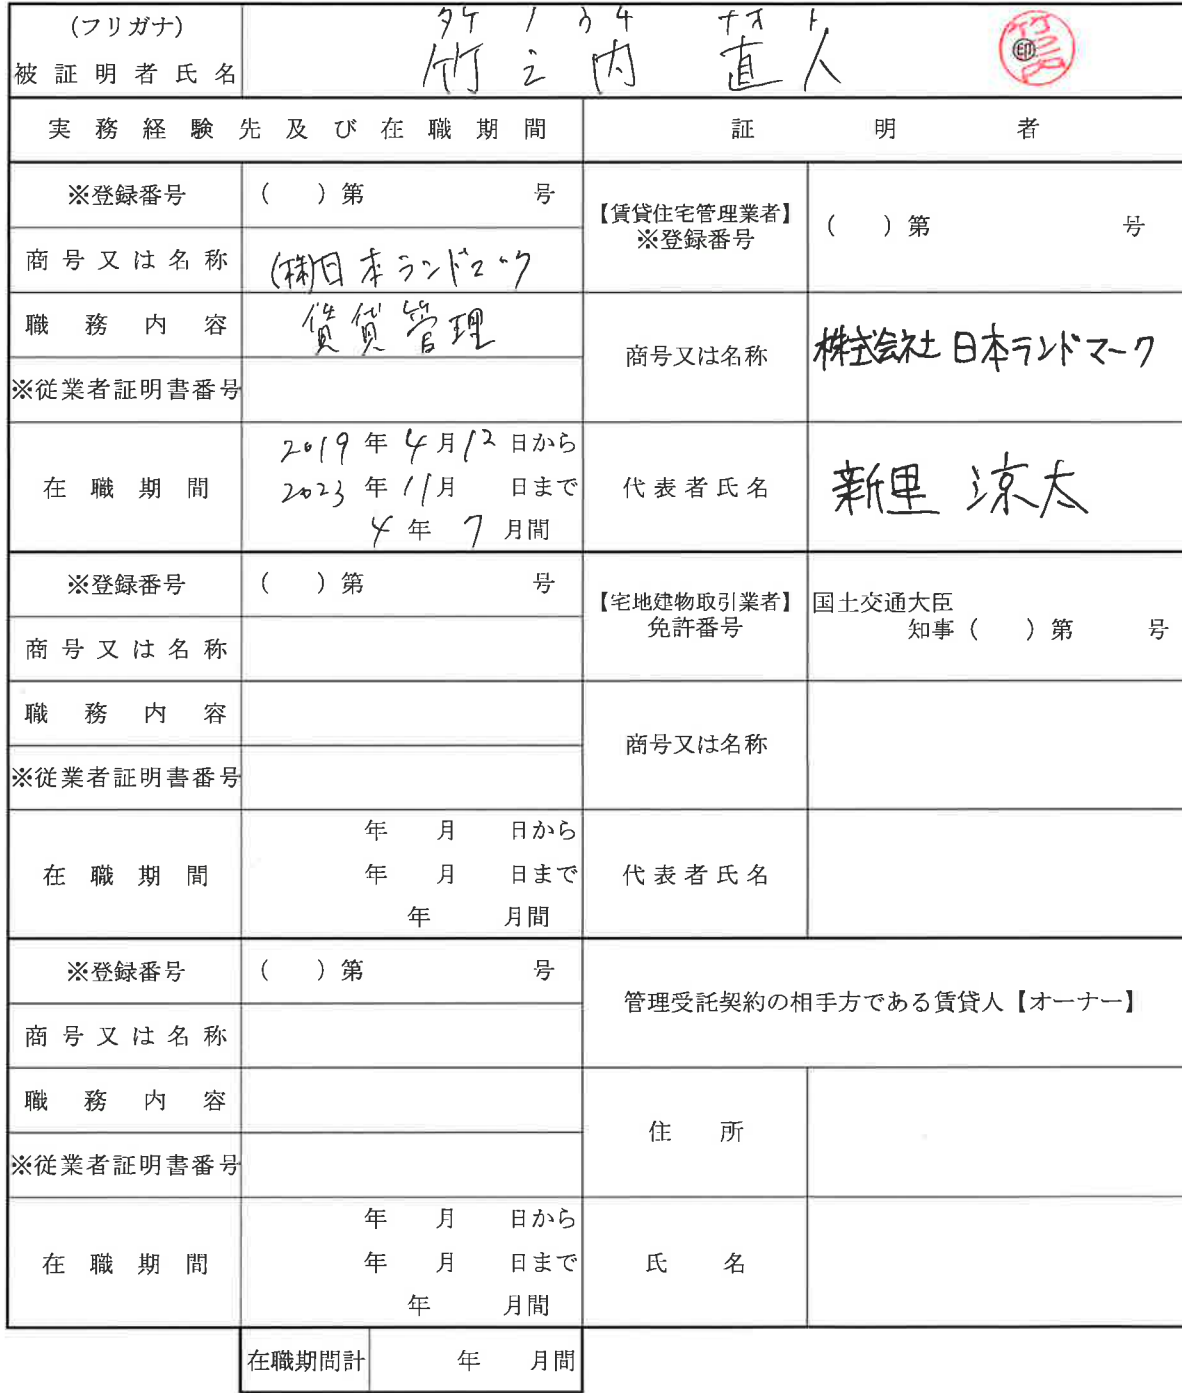 (フリガナ) タケノウチ ナオト
被証明者氏名 竹之内 直人 ㊞
実務経験先及び在職期間 証明者
※登録番号 ( )第 号
商号又は名称 (株)日本ランドマーク
職務内容 賃貸管理
※従業者証明書番号
在職期間 2019年4月12日から
2023年11月 日まで
4年7月間
【賃貸住宅管理業者】
※登録番号 ( )第 号
商号又は名称 株式会社日本ランドマーク
代表者氏名 新里 涼太
※登録番号 ( )第 号
商号又は名称
職務内容
※従業者証明書番号
在職期間 年 月 日から
年 月 日まで
年 月間
【宅地建物取引業者】 国土交通大臣
免許番号 知事( )第 号
商号又は名称
代表者氏名
※登録番号 ( )第 号
商号又は名称
職務内容
※従業者証明書番号
在職期間 年 月 日から
年 月 日まで
年 月間
管理受託契約の相手方である賃貸人【オーナー】
住所
氏名
在職期問計 年 月間